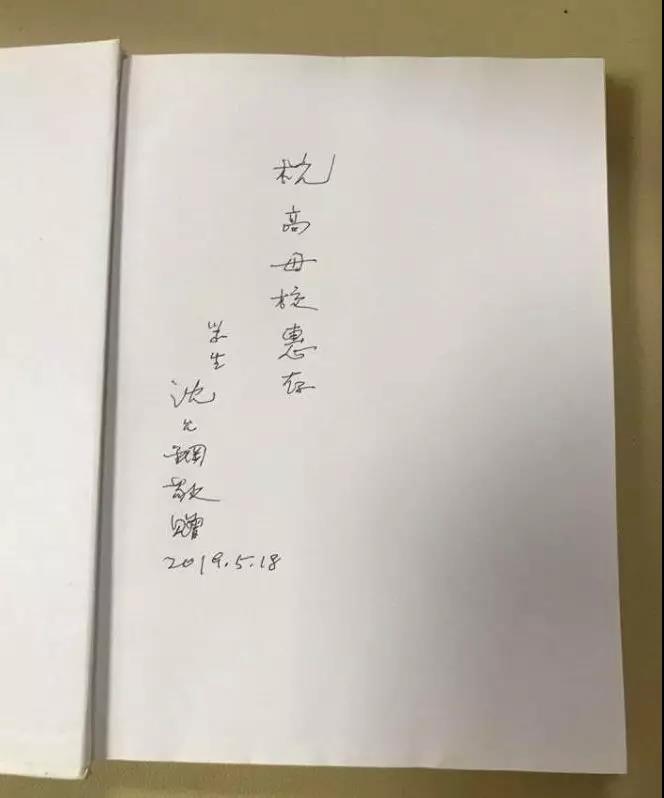 杭高母校惠存
学生
沈允鋼敬赠
2019.5.18